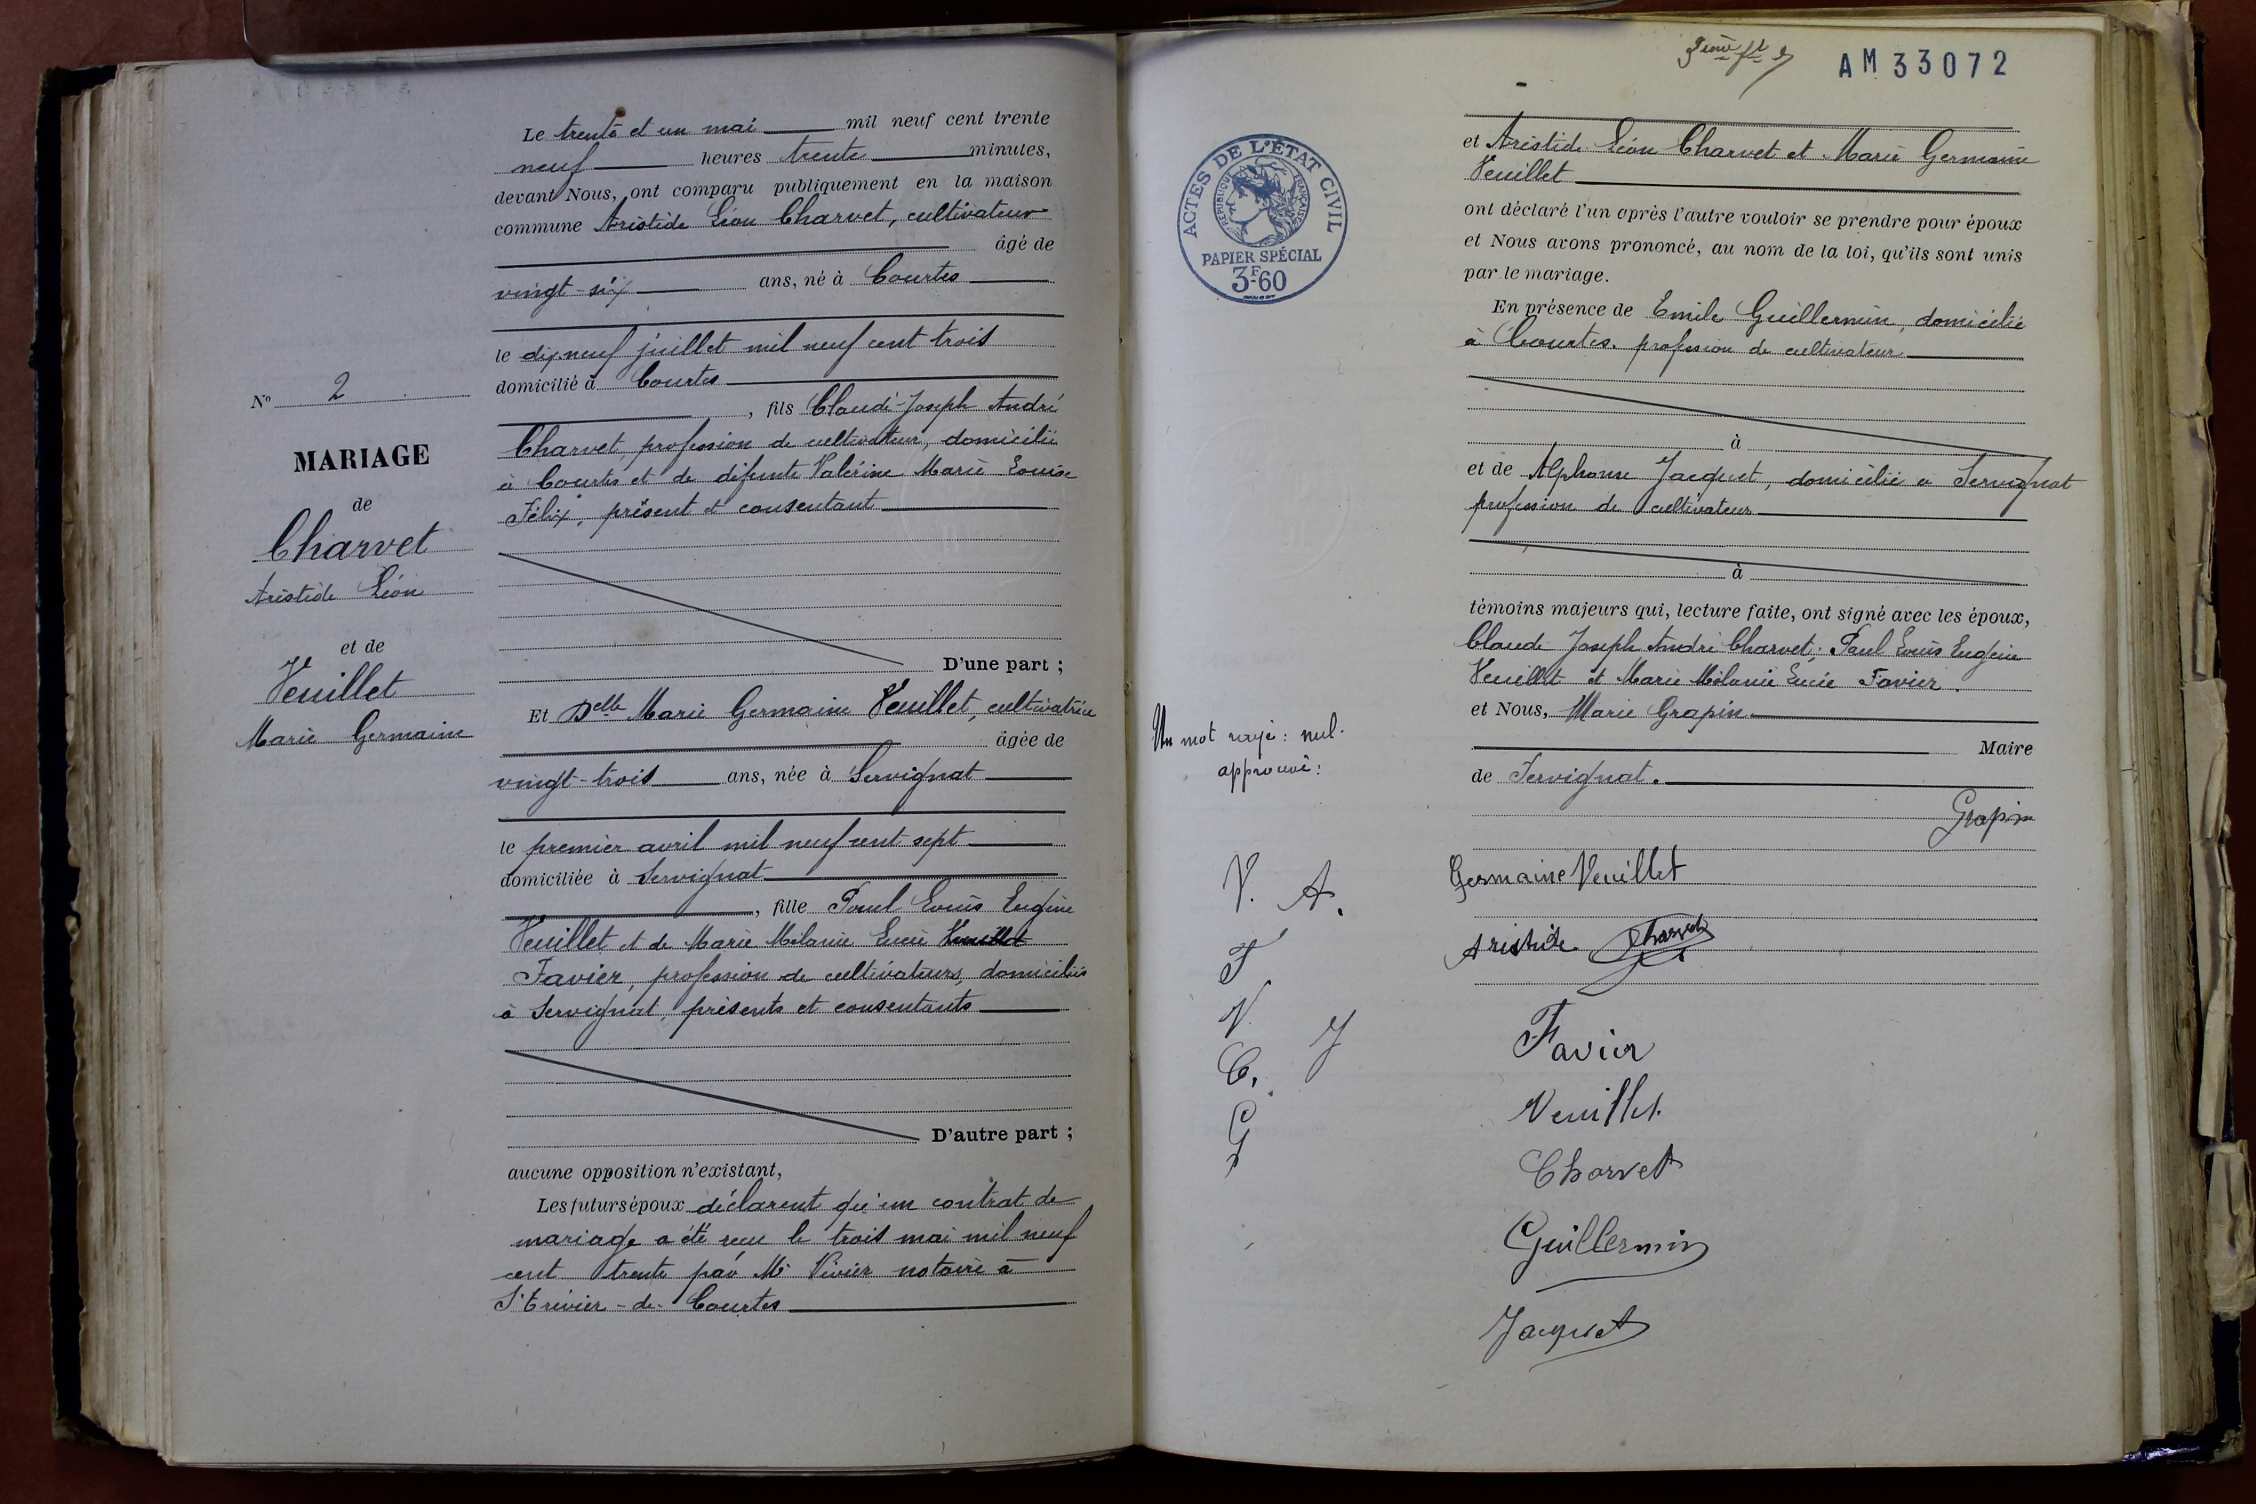 Nº 2
MARIAGE
de
Charvet
Aristide Léon
et de
Veuillet
Marie Germaine
Le trente et un mai mil neuf cent trente
neuf heures trente minutes,
devant Nous, ont comparu publiquement en la maison
commune Aristide Léon Charvet, cultivateur
âgé de
vingt-six ans, né à Courtes
le dix neuf juillet mil neuf cent trois
domicilié à Courtes
, fils Claude-Joseph André
Charvet, profession de cultivateur, domicilié
à Courtes et de défunte Valérine Marie Louise
Félix, présent et consentant
D'une part ;
Et Delle Marie Germaine Veuillet, cultivatrice
âgée de
vingt-trois ans, née à Servignat
le premier avril mil neuf cent sept
domiciliée à Servignat
, fille Paul Louis Eugène
Veuillet et de Marie Mélanie Lucie Veuillet
Favier, profession de cultivateurs, domiciliés
à Servignat, présents et consentants
D'autre part ;
aucune opposition n'existant,
Les futurs époux déclarent qu'un contrat de
mariage a été reçu le trois mai mil neuf
cent trente par Me Vivier notaire à
St Trivier-de-Courtes
AM 33072
ACTES DE L'ÉTAT CIVIL
RÉPUBLIQUE FRANÇAISE
PAPIER SPÉCIAL
3F60
et Aristide Léon Charvet et Marie Germaine
Veuillet
ont déclaré l'un après l'autre vouloir se prendre pour époux
et Nous avons prononcé, au nom de la loi, qu'ils sont unis
par le mariage.
En présence de Emile Guillermin, domicilié
à Courtes. profession de cultivateur
à
et de Alphonse Jacquet, domicilié à Servignat
profession de cultivateur
à
témoins majeurs qui, lecture faite, ont signé avec les époux,
Claude Joseph André Charvet; Paul Louis Eugène
Veuillet et Marie Mélanie Lucie Favier.
et Nous, Marie Grapin
Maire
de Servignat.
Un mot rayé : nul.
approuvé :
V. A.
F
V. J
C.
G
Grapin
Germaine Veuillet
Aristide Charvet
Favier
Veuillet
Charvet
Guillermin
Jacquet